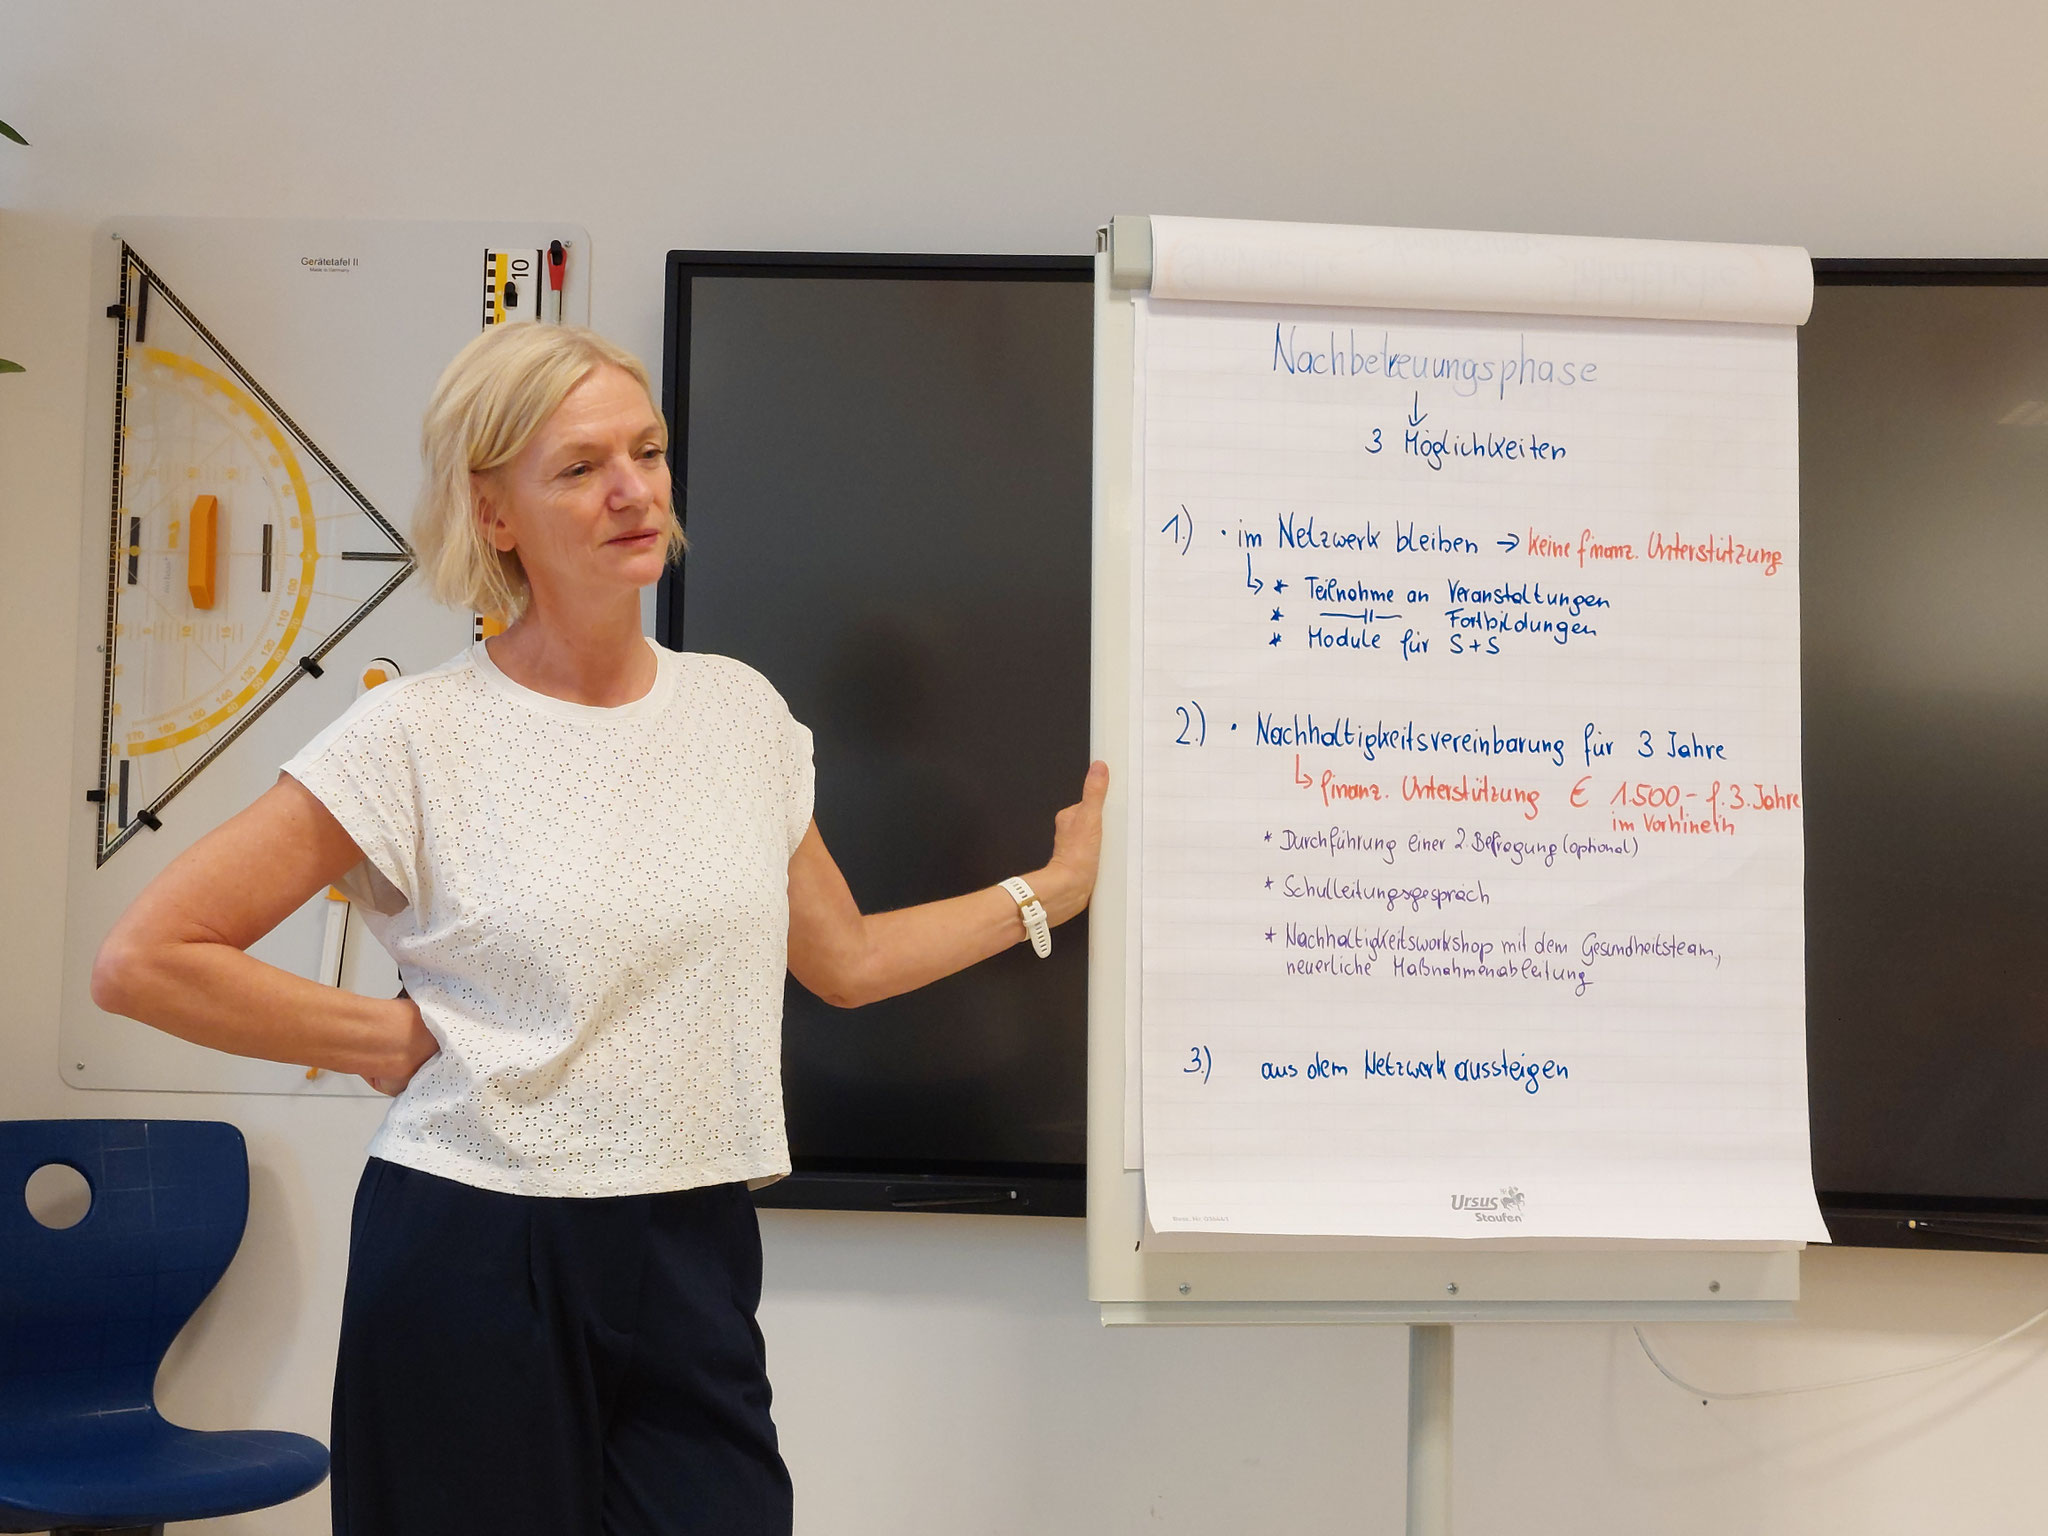 Gerätetafel II
Made in Germany
10
Nachbetreuungsphase
↓
3 Möglichkeiten
1.) · im Netzwerk bleiben → keine finanz. Unterstützung
↳ * Teilnahme an Veranstaltungen
* —||— Fortbildungen
* Module für S+S
2.) · Nachhaltigkeitsvereinbarung für 3 Jahre
↳ finanz. Unterstützung € 1.500,- f. 3. Jahre
im Vorhinein
* Durchführung einer 2. Befragung (optional)
* Schulleitungsgespräch
* Nachhaltigkeitsworkshop mit dem Gesundheitsteam,
neuerliche Maßnahmenableitung
3.) aus dem Netzwerk aussteigen
Ursus
Staufen